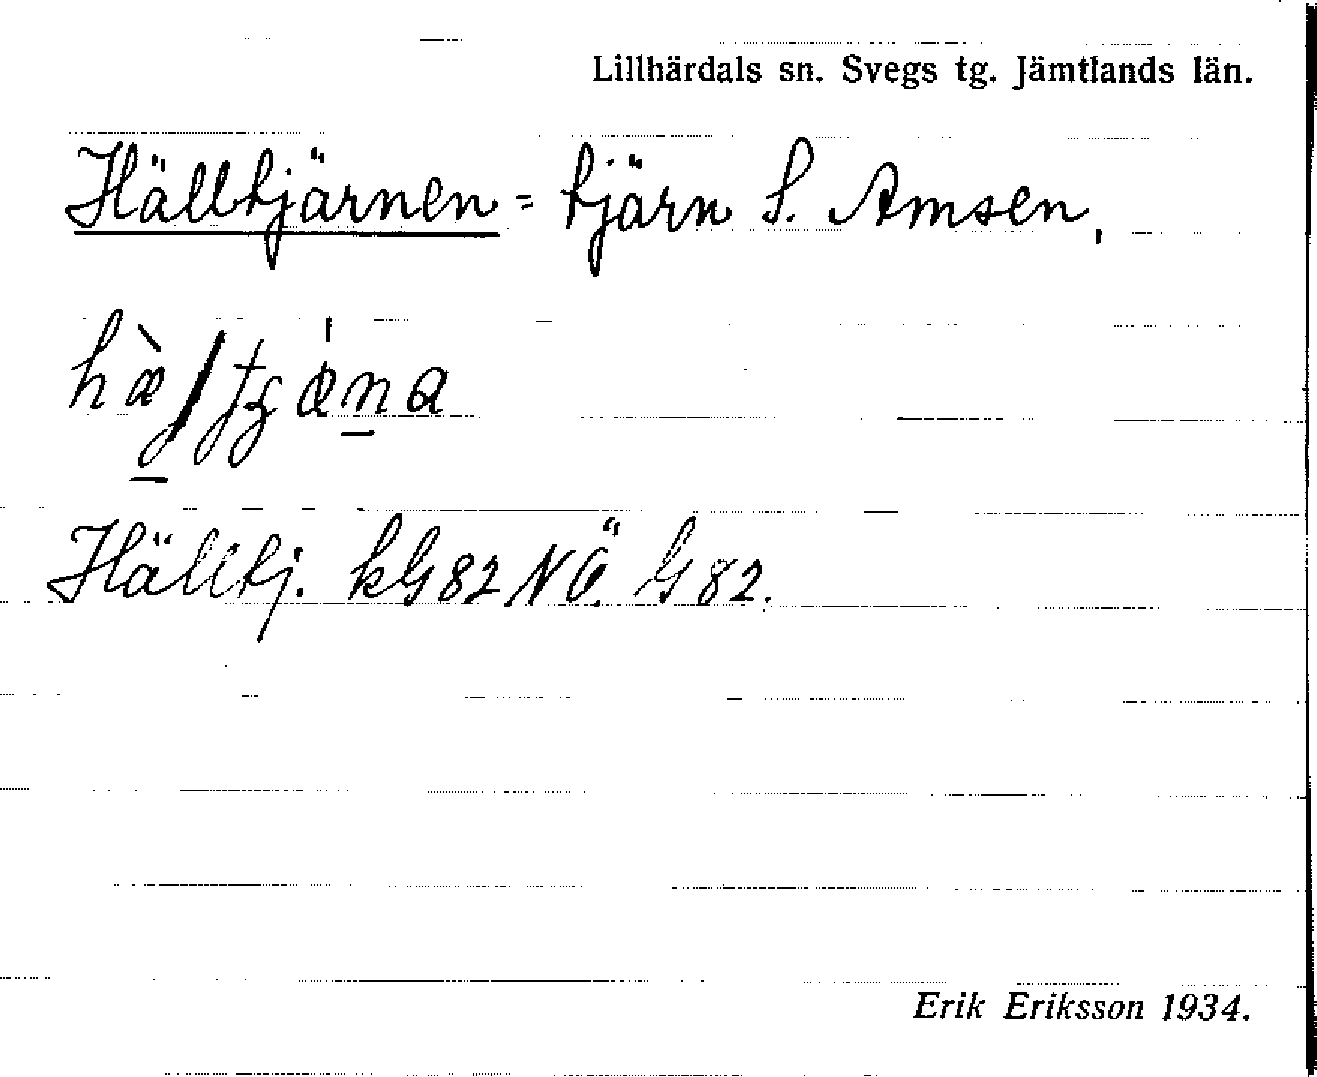 Lillhärdals sn. Svegs tg. Jämtlands län.
Hälltjärnen = tjärn S. Amsen,
Hälltj. kG82NÖ. G82.
Erik Eriksson 1934.